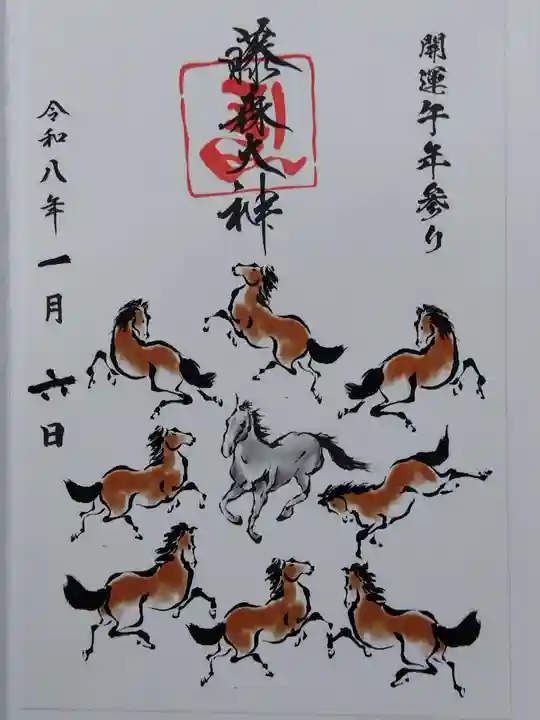 開運午年参り
藤森大神
令和八年一月六日